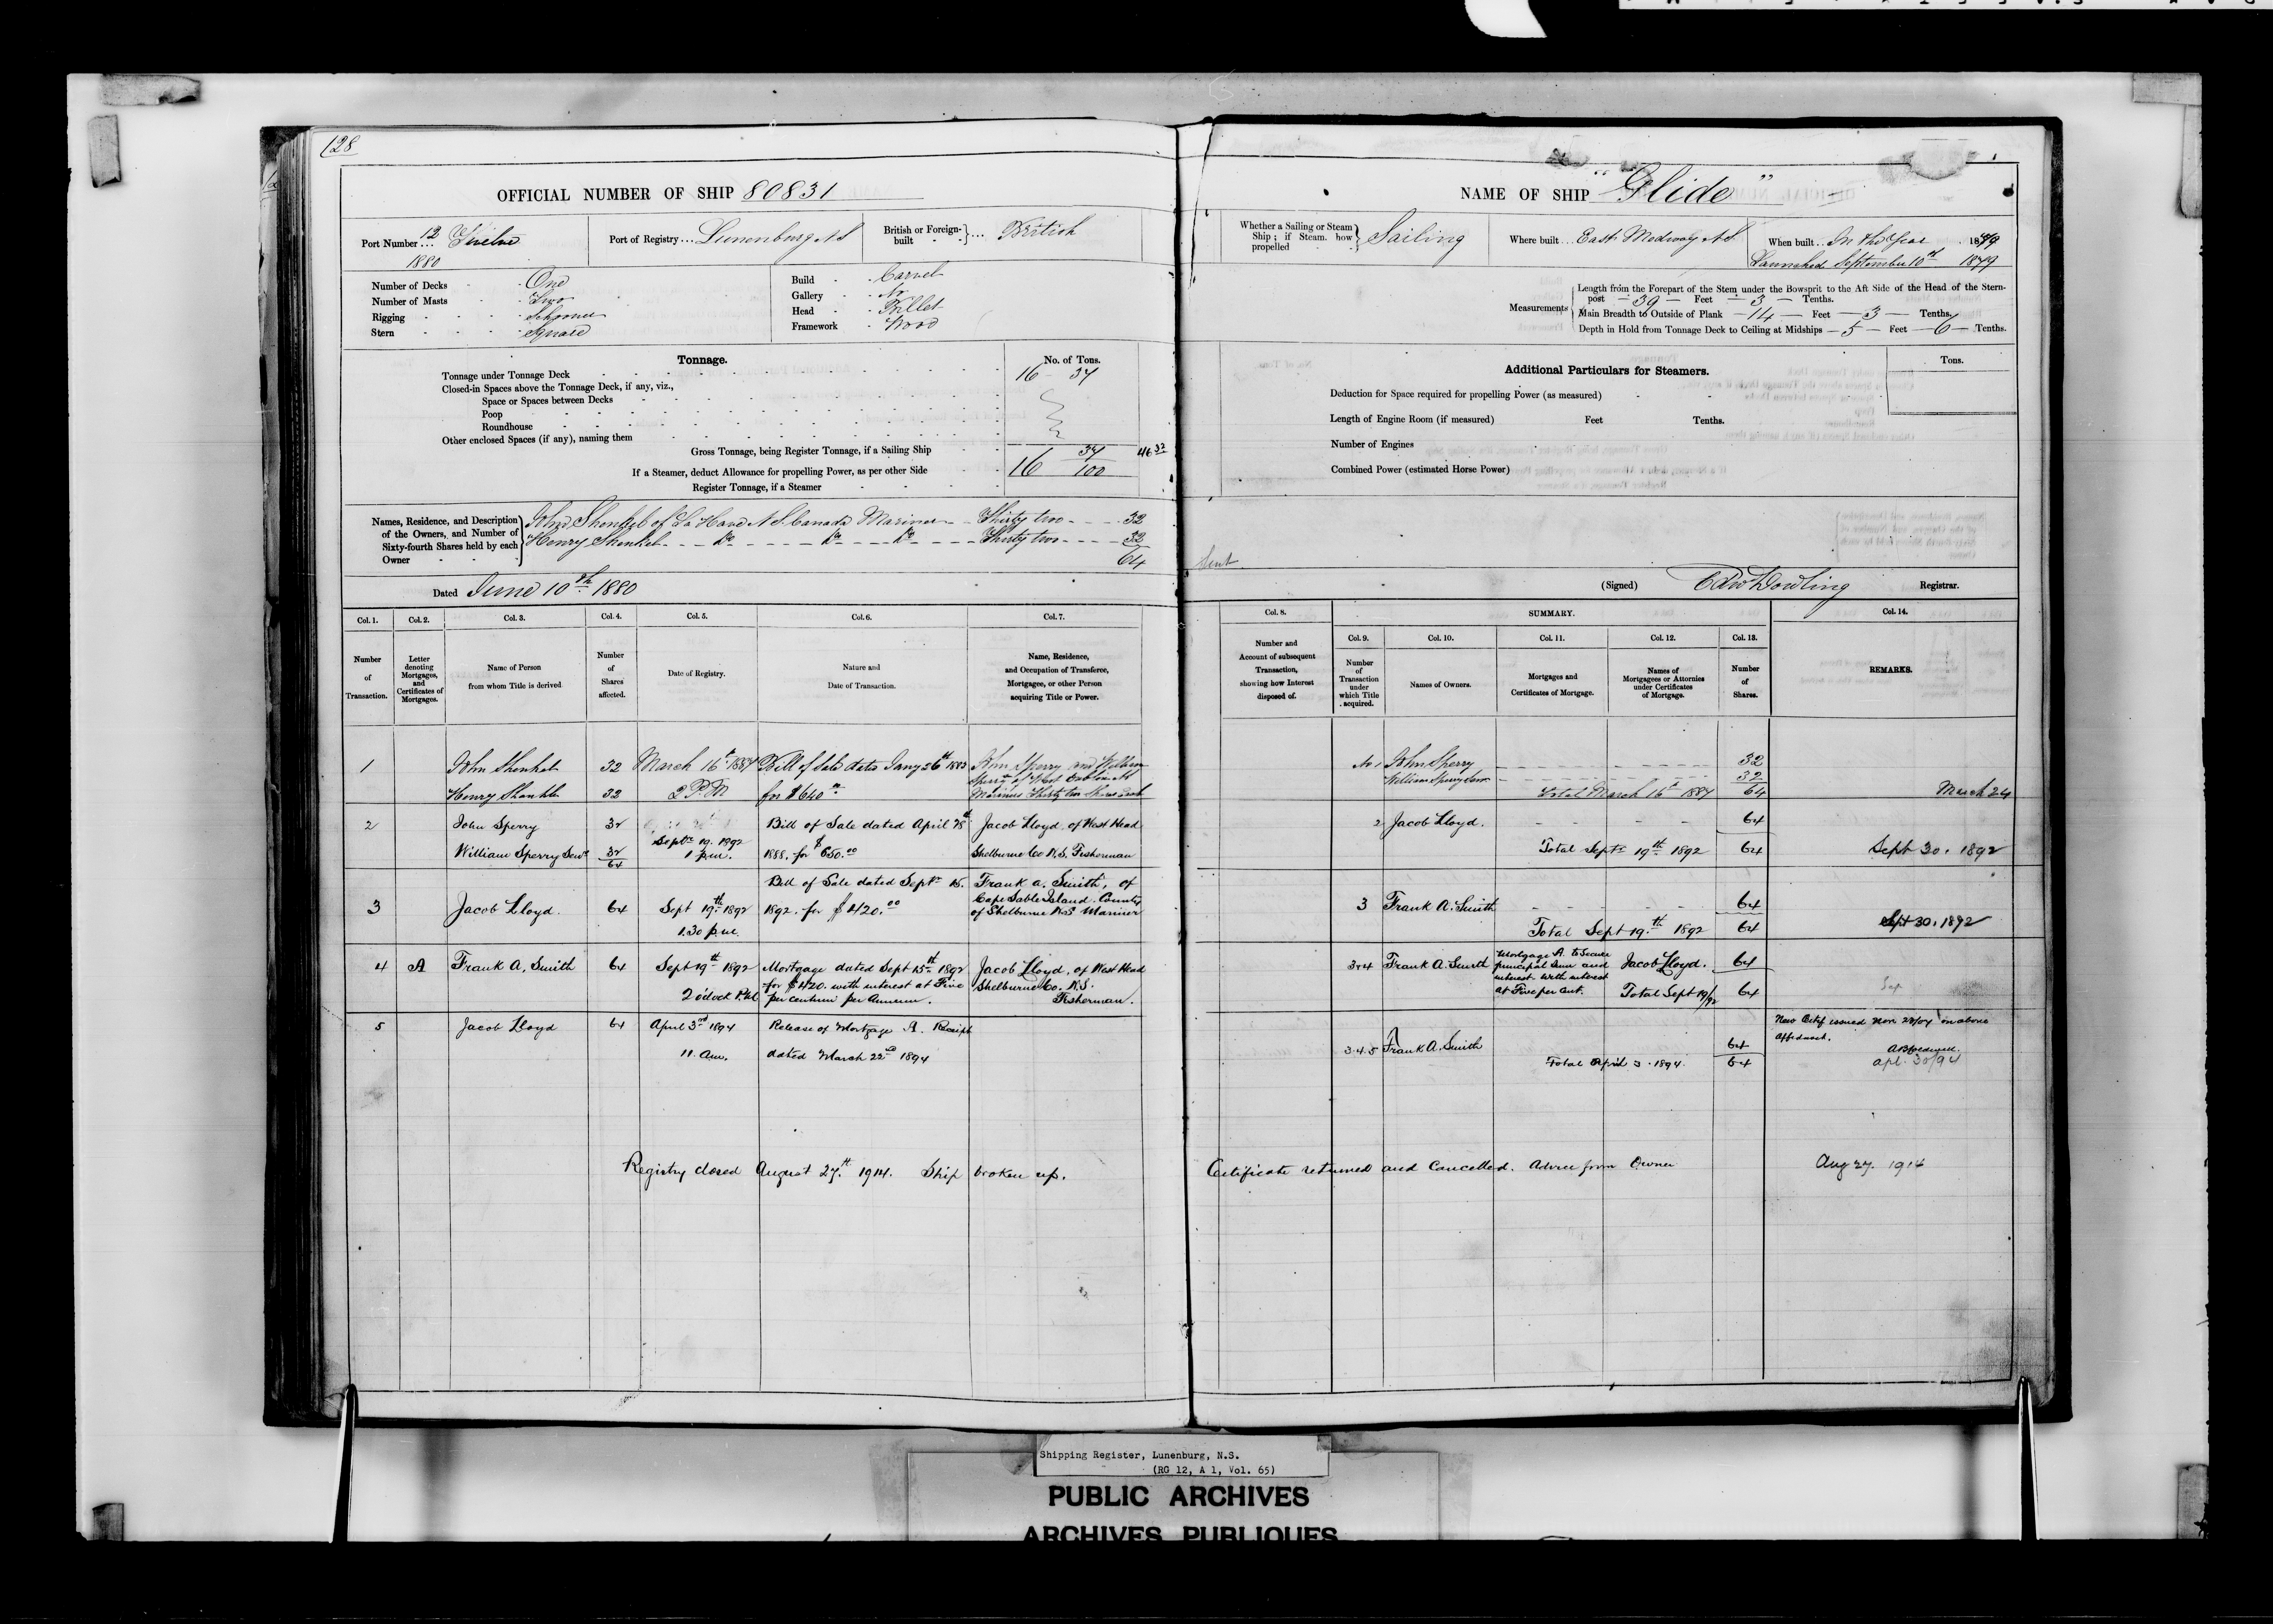 128
OFFICIAL NUMBER OF SHIP 80831
Port Number ... 12 Twelve
1880
Port of Registry ... Lunenburg N S
British or Foreign-built } ... British
Number of Decks - One
Number of Masts - Two
Rigging - Schooner
Stern - Square
Build - Carvel
Gallery - No
Head - Billet
Framework - Wood
Tonnage.
No. of Tons.
Tonnage under Tonnage Deck 16 34
Closed-in Spaces above the Tonnage Deck, if any, viz.,
Space or Spaces between Decks
Poop
Roundhouse
Other enclosed Spaces (if any), naming them
Gross Tonnage, being Register Tonnage, if a Sailing Ship 34
If a Steamer, deduct Allowance for propelling Power, as per other Side 16 100
Register Tonnage, if a Steamer
46 32
Names, Residence, and Description of the Owners, and Number of Sixty-fourth Shares held by each Owner
John Shenkel of La Have N S Canada Mariner - - Thirty two - - - 32
Henry Shenkel - - - Do - - - - Do - - - Do - - - Thirty two - - - 32
64
Dated June 10th 1880
Col. 1. Col. 2. Col. 3. Col. 4. Col. 5. Col. 6. Col. 7.
Number of Transaction.
Letter denoting Mortgages, and Certificates of Mortgages.
Name of Person from whom Title is derived
Number of Shares affected.
Date of Registry.
Nature and Date of Transaction.
Name, Residence, and Occupation of Transferee, Mortgagee, or other Person acquiring Title or Power.
1 John Shenkel 32 March 16th 1884 Bill of Sale dated Jany 26th 1883 John Sperry and William
Sperry of West Dublin N S
Henry Shenkel 32 2 P.M for $640 00 Mariners Thirty two Shares each
2 John Sperry 32 Bill of Sale dated April 28th Jacob Lloyd of West Head
Septr 19. 1892
William Sperry Senr 32 1 p.m. 1888. for $650.00 Shelburne Co N.S. Fisherman
64
Bill of Sale dated Septr 15. Frank A. Smith, of
3 Jacob Lloyd. 64 Sept 19th 1892 1892. for $420.00 Cape Sable Island. County
of Shelburne N.S. Mariner
1.30 p.m.
4 A Frank A. Smith 64 Sept 19th 1892 Mortgage dated Sept 15th 1892 Jacob Lloyd, of West Head
for $420. with interest at Five Shelburne Co. N.S.
2 o'clock P.M. per centum per annum. Fisherman.
5 Jacob Lloyd 64 April 3rd 1894 Release of Mortgage A. Receipt
11. am. dated March 22nd 1894
Registry closed August 27th 1914. Ship broken up.
NAME OF SHIP "Glide"
Whether a Sailing or Steam Ship; if Steam. how propelled } Sailing
Where built ... East Medway N.S.
When built ... In the Year 1879
Launched September 10th 1879
Measurements
Length from the Forepart of the Stem under the Bowsprit to the Aft Side of the Head of the Stern-
post — 39 — Feet — 3 — Tenths.
Main Breadth to Outside of Plank — 14 — Feet — 3 — Tenths.
Depth in Hold from Tonnage Deck to Ceiling at Midships — 5 — Feet — 6 — Tenths.
Additional Particulars for Steamers.
Tons.
Deduction for Space required for propelling Power (as measured)
Length of Engine Room (if measured) Feet Tenths.
Number of Engines
Combined Power (estimated Horse Power)
Sent
(Signed) Edw Dowling Registrar.
Col. 8. SUMMARY. Col. 14.
Col. 9. Col. 10. Col. 11. Col. 12. Col. 13.
Number and Account of subsequent Transaction, showing how Interest disposed of.
Number of Transaction under which Title acquired.
Names of Owners.
Mortgages and Certificates of Mortgage.
Names of Mortgagees or Attornies under Certificates of Mortgage.
Number of Shares.
REMARKS.
No 1 John Sperry 32
William Sperry Senr 32
Total March 16th 1884 64 March 24
2 Jacob Lloyd. - - - 64
Total Septr 19th 1892 64 Sept 30. 1892
3 Frank A. Smith - - - 64
Total Sept 19th 1892 64 Sept 30. 1892
3 & 4 Frank A. Smith Mortgage A. to Secure principal Sum and interest with interest at Five per cent. Jacob Lloyd. 64
Total Sept 19/92 64
New Certif issued Nov 28/04 on above
3.4.5 Frank A. Smith 64
Total April 3. 1894. 64 apl. 30/94
Certificate returned and Cancelled. Advice from Owner Aug 27. 1914
Shipping Register, Lunenburg, N.S.
(RG 12, A 1, Vol. 65)
PUBLIC ARCHIVES
ARCHIVES PUBLIQUES